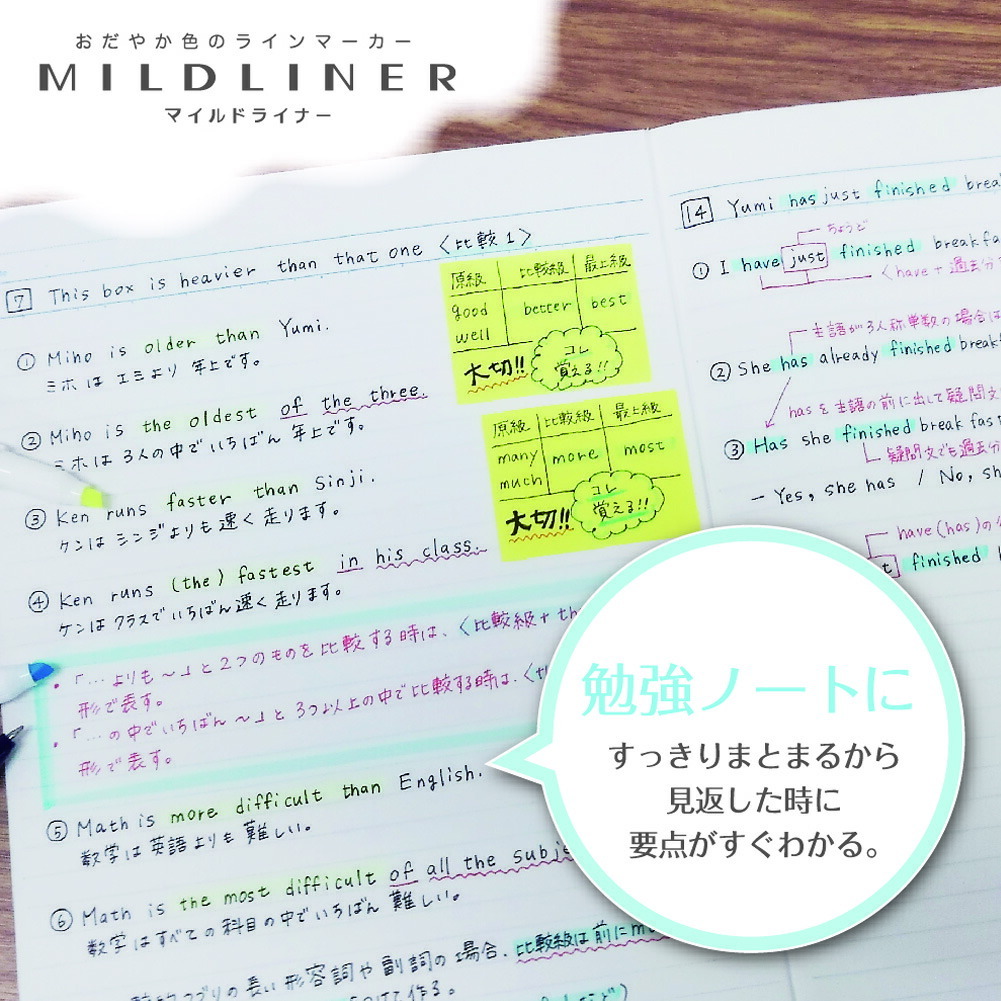 おだやか色のラインマーカー
MILDLINER
マイルドライナー
7 This box is heavier than that one 〈比較1〉
① Miho is older than Yumi.
ミホは エミより 年上です。
② Miho is the oldest of the three.
ミホは 3人の中でいちばん 年上です。
③ Ken runs faster than Sinji.
ケンは シンジよりも 速く 走ります。
④ Ken runs (the) fastest in his class.
ケンは クラスでいちばん 速く 走ります。
・「…よりも〜」と 2つのものを 比較する時は、〈比較級+th
形で表す。
・「…の中でいちばん〜」と 3つ以上の中で比較する時は、〈th
形で表す。
⑤ Math is more difficult than English.
数学は 英語よりも 難しい。
⑥ Math is the most difficult of all the subje
数学はすべての科目の中でいちばん 難しい。
の長い形容詞や副詞の場合、比較級は前にm
つけて作る。
原級 比較級 最上級
good better best
well
大切!! コレ
覚える!!
原級 比較級 最上級
many more most
much
大切!! コレ
覚える!!
14 Yumi has just finished brea
ちょうど
① I have just finished breakfa
〈have+過去分
主語が3人称単数の場合は
② She has already finished break
hasを主語の前に出して疑問文
③ Has she finished breakfas
疑問文でも過去分
– Yes, she has / No, sh
have(has)の
t finished b
勉強ノートに
すっきりまとまるから
見返した時に
要点がすぐわかる。